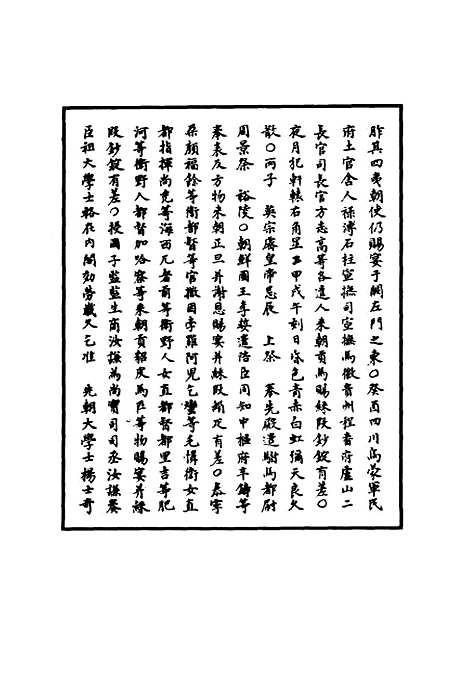 胙其四夷朝使仍賜宴于闕左門之東○癸酉四川烏蒙軍民
府土官舍人祿溥石柱宣撫司宣撫馬徽貴州程番府盧山二
長官司長官方志高等各遣人來朝貢馬賜綵叚鈔錠有差○
夜月犯軒轅右角星○甲戌午刻日暈色青赤白虹彌天良久
散○丙子　英宗睿皇帝忌辰　上祭　奉先殿遣駙馬都尉
周景祭　裕陵○朝鮮國王李娎遣陪臣同知中樞府辛鑄等
奉表及方物來朝正旦并謝恩賜宴并綵叚絹有差○泰寧
朶顏福餘等衛都督等官撒因孛羅阿兒乞蠻等毛憐衛女直
都指揮尚克等海西兀者前等衛野人女直都督都里吉等肥
河等衛野人都督加哈察等來朝貢貂皮馬匹等物賜宴并綵
叚鈔錠有差○授國子監監生商汝謙為尚寶司司丞汝謙奏
臣祖大學士輅在內閣効勞歲久乞准　先朝大學士楊士奇